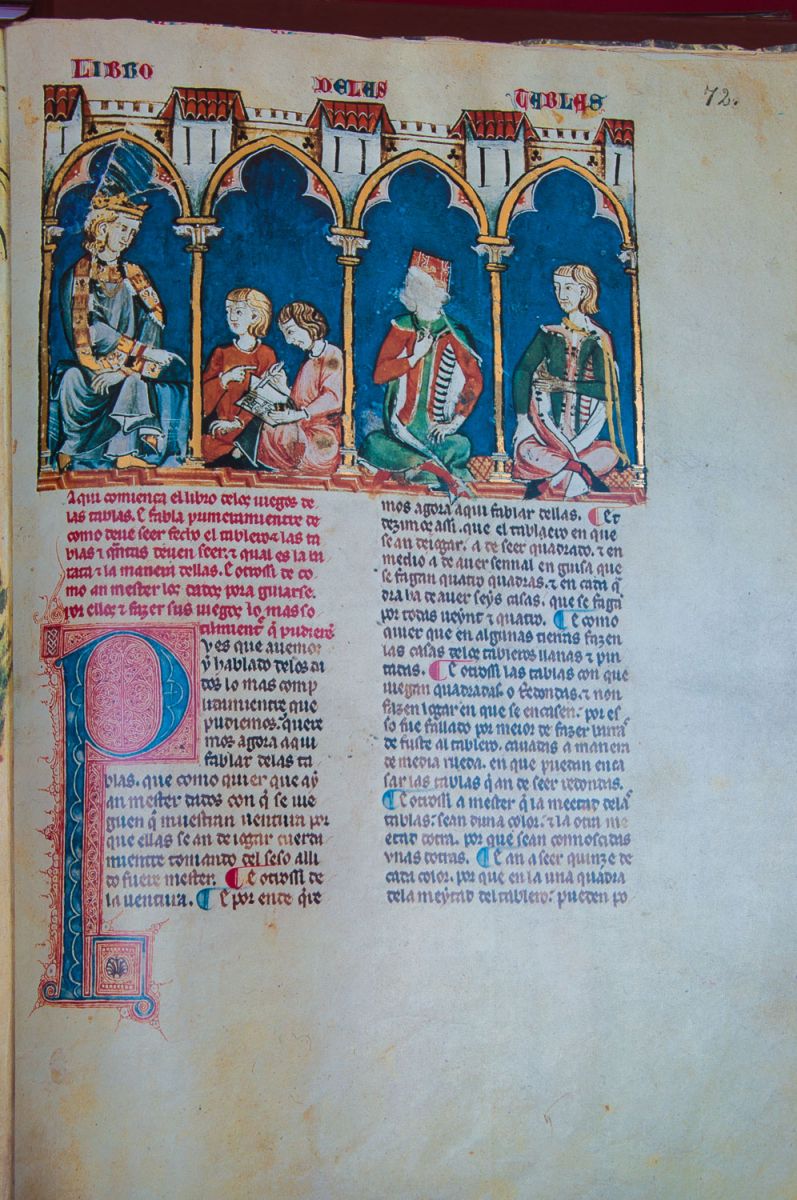 LIBRO DELAS TABLAS
72.
Aqui comiença el libro delos iuegos de
las tablas. E fabla primeramientre de
como deue seer fecho el tablero & las ta
blas & quantas deuen seer. & qual es la ba
rata & la manera dellas. E otrossi de co
mo an mester los dados pora guiarse.
por ellos & fazer sus iuegos lo mas so
tilmient q̃ pudieren
Pves que auemos
ya hablado delos da
dos lo mas comp
lidamientre que
pudiemos. quere
mos agora aqui
fablar delas ta
blas. que como quier que ay
an mester dados con q̃ se iue
guen q̃ muestran uentura por
que ellas se an de iogar cuerda
mientre tomando del seso alli
do fuere mester. E otrossi de
la uentura. E por ende q̃re
mos agora aqui fablar dellas. Et
dezimos assi. que el tablero en que
se an de iogar. a de seer quadrado. & en
medio a de auer sennal en guisa que
se fagan quatro quadras. & en cada q̃
dra ha de auer seys casas. que se fagã
por todas ueynt & quatro. E como
quier que en algunas tierras fazen
las casas delos tableros llanas & pin
tadas. E otrossi las tablas con que
iuegan quadradas. o redondas. & non
fazen logar en que se encasen. por es
so fue fallado por meior de fazer barra
de fuste al tablero. cauadas a manera
de media rueda. en que puedan enca
sar las tablas q̃ an de seer redondas.
E otrossi a mester q̃ la meetad delas
tablas. sean duna color. & la otra me
etad dotra. por que sean connosçidas
vnas dotras. E an a seer quinze de
cada color. por que en la una quadra
dela meytad del tablero. pueden po